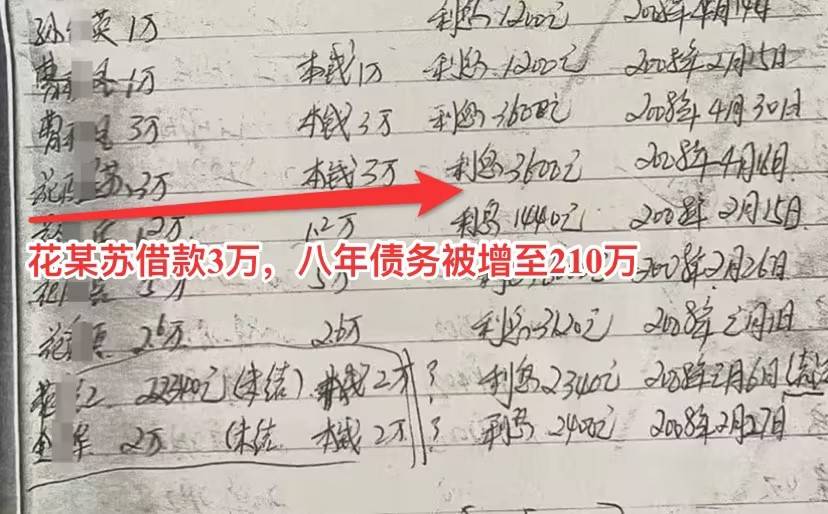 孙 英 1万 利息1200元 2008年4月14日
曹 1万 本钱1万 利息1200元 2008年2月15日
曹 3万 本钱3万 利息3600元 2008年4月30日
花 苏 3万 本钱3万 利息3600元 2008年4月16日
1.2万 1.2万 利息1440元 2008年2月15日
花某苏借款3万，八年债务被增至210万
5万 5万 2008年2月26日
花 2.6万 2.6万 利息3120元 2008年2月1日
红 22340元(未结) 本钱2万? 利息2340元 2008年2月6日
华 2万 (未结 本钱2万? 利息2400元 2008年2月27日